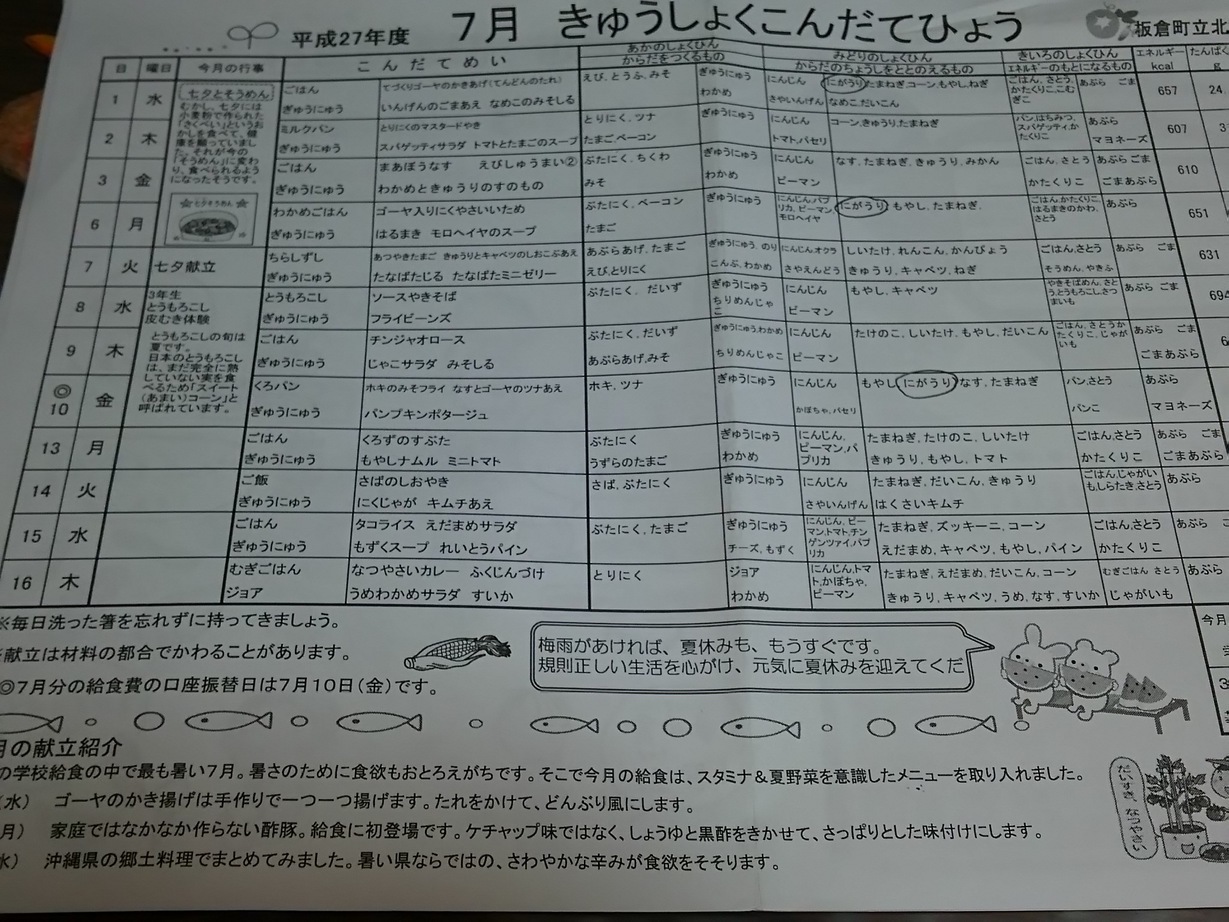 平成27年度 7月 きゅうしょくこんだてひょう 板倉町立北
日 曜日 今月の行事 こんだてめい あかのしょくひん からだをつくるもの みどりのしょくひん からだのちょうしをととのえるもの きいろのしょくひん エネルギーのもとになるもの エネルギー kcal たんぱく g
1 水 ごはん てづくりゴーヤのかきあげ(てんどんのたれ) えび,とうふ,みそ ぎゅうにゅう にんじん にがうり たまねぎ,コーン,もやし,ねぎ ごはん,さとう,かたくりこ,こむぎこ あぶら ごま 657 24.
ぎゅうにゅう いんげんのごまあえ なめこのみそしる わかめ さやいんげん なめこ,だいこん
七夕とそうめん
むかし、七夕には
小麦粉で作られた
「さくべい」というお
かしを食べて、健
康を願っていまし
た。それが今の
「そうめん」に変わ
り、食べられるよう
になったそうです。
七夕そうめん
2 木 ミルクパン とりにくのマスタードやき とりにく,ツナ ぎゅうにゅう にんじん コーン,きゅうり,たまねぎ パン,はちみつ,スパゲッティ,かたくりこ あぶら 607 3
ぎゅうにゅう スパゲッティサラダ トマトとたまごのスープ たまご,ベーコン トマト,パセリ マヨネーズ
3 金 ごはん まあぼうなす えびしゅうまい② ぶたにく,ちくわ ぎゅうにゅう にんじん なす,たまねぎ,きゅうり,みかん ごはん,さとう あぶら ごま 610
ぎゅうにゅう わかめときゅうりのすのもの みそ わかめ ピーマン かたくりこ ごまあぶら
6 月 わかめごはん ゴーヤ入りにくやさいいため ぶたにく,ベーコン ぎゅうにゅう にんじん,パプリカ,ピーマン,モロヘイヤ にがうり もやし,たまねぎ, ごはん,かたくりこ,はるまきのかわ,さとう あぶら 651
ぎゅうにゅう はるまき モロヘイヤのスープ たまご
7 火 七夕献立 ちらしずし あつやきたまご きゅうりとキャベツのしおこぶあえ あぶらあげ,たまご ぎゅうにゅう,のり にんじん,オクラ しいたけ,れんこん,かんぴょう ごはん,さとう あぶら ごま 631
ぎゅうにゅう たなばたじる たなばたミニゼリー えび,とりにく こんぶ,わかめ さやえんどう きゅうり,キャベツ,ねぎ そうめん,やきふ
8 水 3年生 とうもろこし 皮むき体験 とうもろこし ソースやきそば ぶたにく,だいず ぎゅうにゅう にんじん もやし,キャベツ やきそばめん,さとう,とうもろこし,さつまいも あぶら ごま 694
ぎゅうにゅう フライビーンズ ちりめんじゃこ ピーマン
9 木 ごはん チンジャオロース ぶたにく,だいず ぎゅうにゅう,わかめ にんじん たけのこ,しいたけ,もやし,だいこん ごはん,さとうかたくりこ,じゃがいも あぶら ごま
ぎゅうにゅう じゃこサラダ みそしる あぶらあげ,みそ ちりめんじゃこ ピーマン ごまあぶら
とうもろこしの旬は
夏です。
日本のとうもろこし
は、まだ完全に熟
していない実を食
べるため「スイート
(あまい)コーン」と
呼ばれています。
◎10 金 くろパン ホキのみそフライ なすとゴーヤのツナあえ ホキ,ツナ ぎゅうにゅう にんじん もやし,にがうり,なす,たまねぎ パン,さとう あぶら
ぎゅうにゅう パンプキンポタージュ かぼちゃ,パセリ パンこ マヨネーズ
13 月 ごはん くろずのすぶた ぶたにく ぎゅうにゅう にんじん,ピーマン,パプリカ たまねぎ,たけのこ,しいたけ ごはん,さとう あぶら ごま
ぎゅうにゅう もやしナムル ミニトマト うずらのたまご わかめ きゅうり,もやし,トマト かたくりこ ごまあぶら
14 火 ご飯 さばのしおやき さば,ぶたにく ぎゅうにゅう にんじん たまねぎ,だいこん,きゅうり ごはん,じゃがいも,しらたき,さとう あぶら
ぎゅうにゅう にくじゃが キムチあえ さやいんげん はくさいキムチ
15 水 ごはん タコライス えだまめサラダ ぶたにく,たまご ぎゅうにゅう にんじん,ピーマン,トマト,チンゲンツァイ,パプリカ たまねぎ,ズッキーニ,コーン ごはん,さとう あぶら
ぎゅうにゅう もずくスープ れいとうパイン チーズ,もずく えだまめ,キャベツ,もやし,パイン かたくりこ
16 木 むぎごはん なつやさいカレー ふくじんづけ とりにく ジョア にんじん,トマト,かぼちゃ,ピーマン たまねぎ,えだまめ,だいこん,コーン むぎごはん さとう あぶら
ジョア うめわかめサラダ すいか わかめ きゅうり,キャベツ,うめ,なす,すいか じゃがいも
※毎日洗った箸を忘れずに持ってきましょう。
※献立は材料の都合でかわることがあります。
◎7月分の給食費の口座振替日は7月10日(金)です。
梅雨があければ、夏休みも、もうすぐです。
規則正しい生活を心がけ、元気に夏休みを迎えてくだ
今月
月の献立紹介
の学校給食の中で最も暑い7月。暑さのために食欲もおとろえがちです。そこで今月の給食は、スタミナ&夏野菜を意識したメニューを取り入れました。
(水) ゴーヤのかき揚げは手作りで一つ一つ揚げます。たれをかけて、どんぶり風にします。
月) 家庭ではなかなか作らない酢豚。給食に初登場です。ケチャップ味ではなく、しょうゆと黒酢をきかせて、さっぱりとした味付けにします。
水) 沖縄県の郷土料理でまとめてみました。暑い県ならではの、さわやかな辛みが食欲をそそります。
だいすき なつやさい